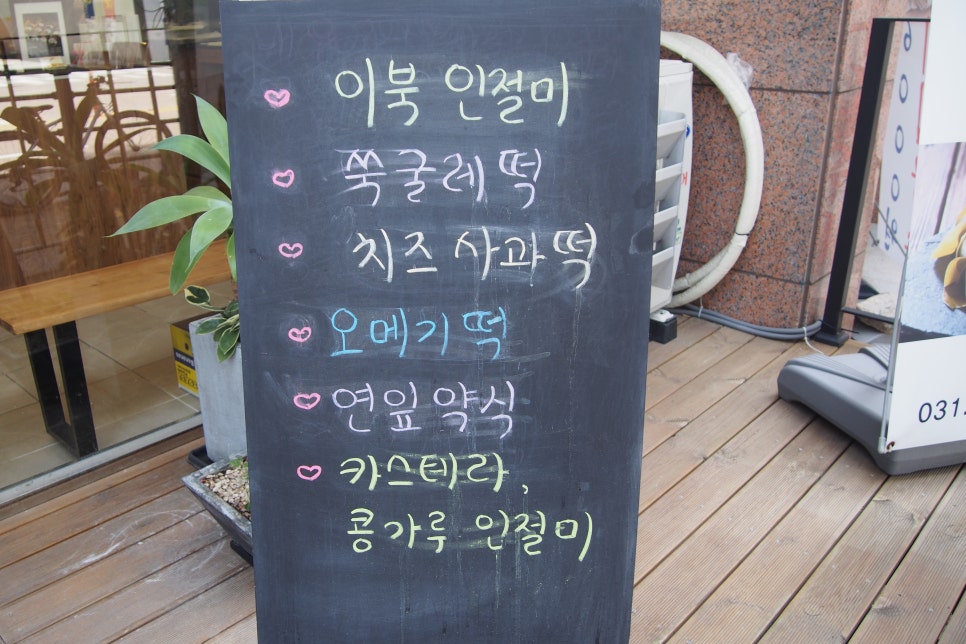 이북 인절미
쑥굴레 떡
치즈 사과떡
오메기 떡
연잎 약식
카스테라,
콩가루 인절미
031.